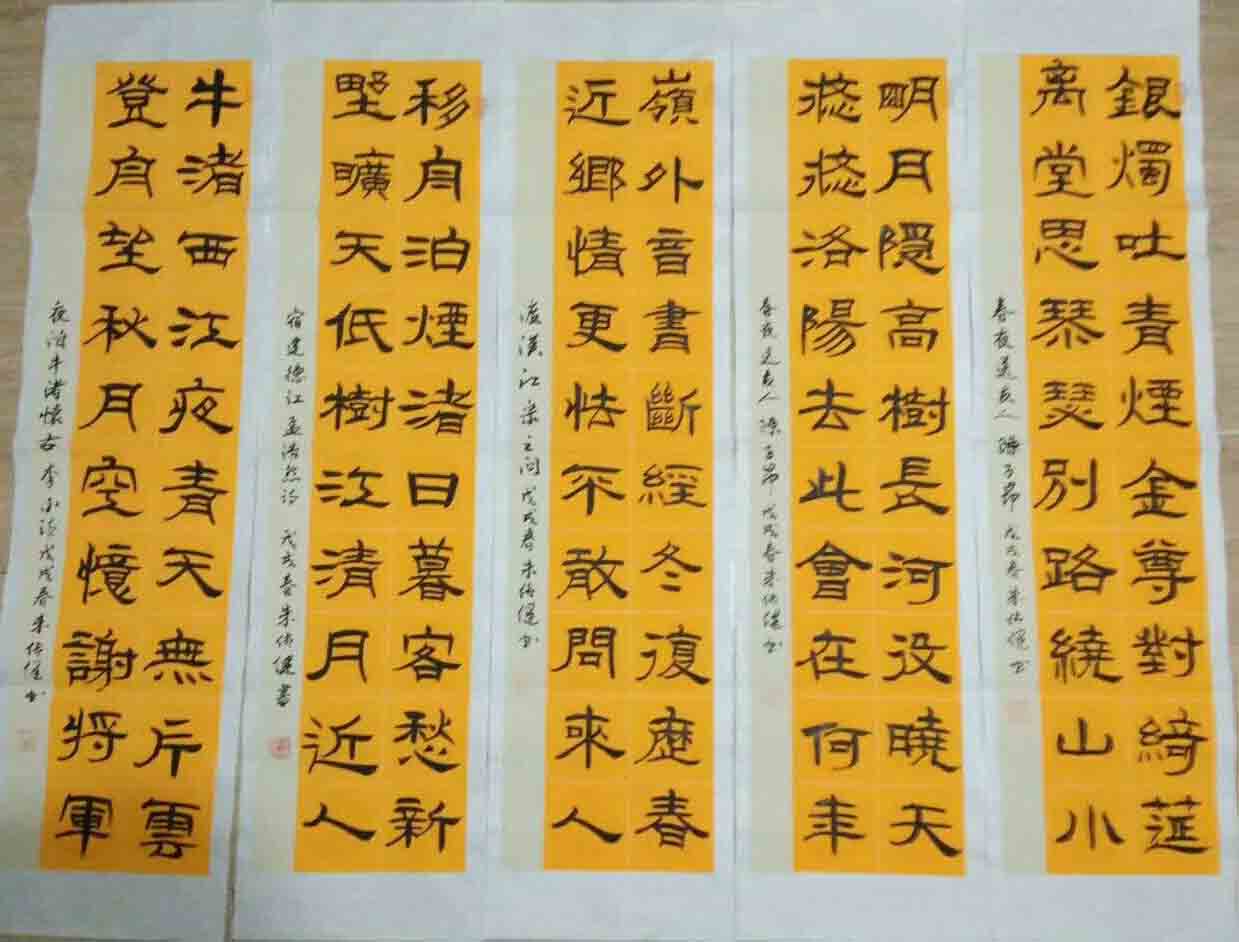 銀燭吐青煙金尊對綺莚
離堂思琴瑟別路繞山小
春夜送友人 陳子昂 戊戌春朱传健书
明月隱高樹長河没曉天
悠悠洛陽去此會在何年
春夜送友人 陳子昂 戊戌春朱传健书
嶺外音書斷經冬復歷春
近鄉情更怯不敢問來人
渡漢江 宋之问 戊戌春朱传健书
移舟泊煙渚日暮客愁新
野曠天低樹江清月近人
宿建德江 孟浩然诗 戊戌春朱传健書
牛渚西江夜青天無片雲
登舟望秋月空憶謝將軍
夜泊牛渚懷古 李白诗 戊戌春朱传健书